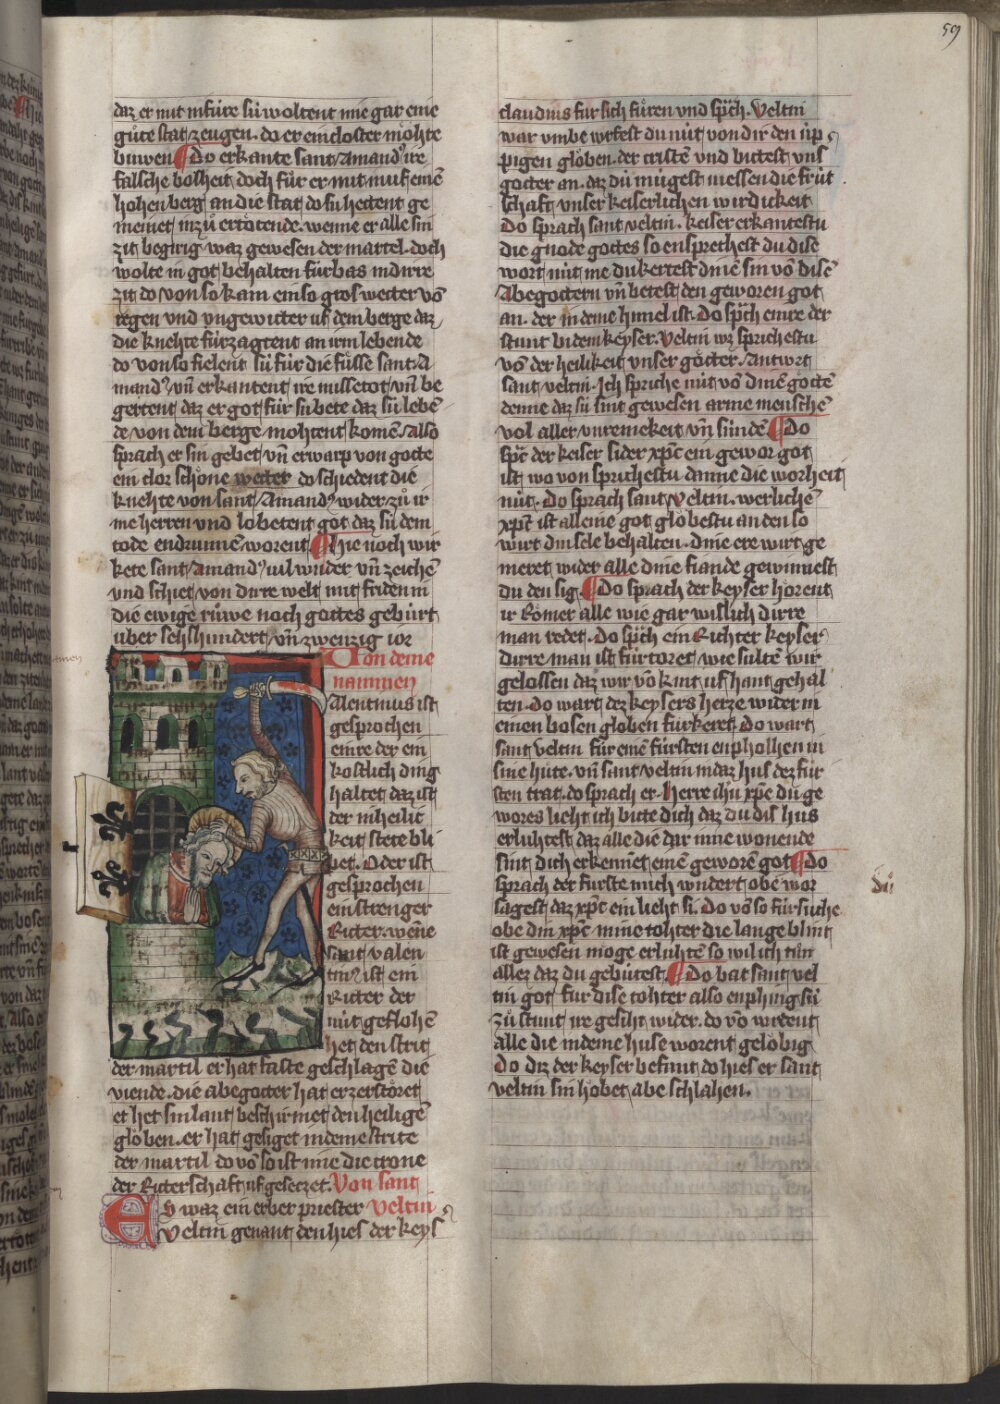 59
daz er mit in füre sü woltent nne gar eine
güte stat zeugen. do er ein closter möhte
buwen Do erkante sant Amandꝰ ire
falsche bosheit doch für er mit muh einē
hohen berg an die stat do su hettent ge
meinet in zů ertötende. wenne er alle sin
zit begirig waz gewesen der martel. doch
wolte in got behalten fürbas in dirre
zit do von so kam ein so gros wetter vō
regen vnd vngewitter uf dem berge daz
die knehte fürzagtent an irm lebende
do von so fielent sü für die füsse sant A
mandꝰ vn̄ erkantent ire missetot vn̄ be
gertent daz er got für sü bete daz sü lebē
de von dem berge mohtent komē Also
sprach er sin gebet vn̄ erwarp von gotte
ein clor schöne wetter do schiedent die
knehte von sant Amandꝰ wider zů ir
me herren vnd lobetent got daz sü dem
tode endrunnē worent Hie noch wir
kete sant Amandꝰ vil wnder vn̄ zeichē
vnd schiet von dirre welt mit friden in
die ewige růwe noch gottes gebürt
über sehshundert vn̄ zwenzig ior
Von deme
nammen
Alentinus ist
gesprochen
einre der ein
kostlich ding
haltet daz ist
der in heilit
keit stete bli
bet. Oder ist
gesprochen
ein strenger
Ritter. wene
sant valen
tinꝰ ist ein
Ritter der
nüt geflohē
het den strit
der martil er hat faste geschlagē die
viende. die abegötter hat er zerstöret
er het sin lant beschirmet den heiligē
glöben. er hat gesiget in deme strite
der martil do vō so ist nne die crone
der Ritterschaft uf gesetzet. Von sant
Es waz ein erber priester Veltin
Veltin genant den hies der keys
claudius für sich füren vnd sp̄ch. Veltin
war vmbe wrfest du nüt von dir den üp
pigen glöben. der cristē vnd bittest vns
götter an. daz dů mügest niessen die früt
schaft vnser keiserlichen wirdickeit
Do sprach sant veltin. keiser erkantestu
die gnode gottes so ensprechest du dise
wort nüt me du kertest dinē sin vō disē
Abegöttern vn̄ betest den geworen got
an. der in deme himel ist. Do sp̄ch einre der
stunt bi dem keyser. Veltin wz sprichestu
vō der heilikeit vnser götter. Antwrt
sant veltin. Ich spriche nüt vō dinē göttē
denne daz sü sint gewesen arme menschē
vol aller vnreinekeit vn̄ sündē Do
sp̄c der keiser sider xp̄c ein gewor got
ist wo von sprichestu danne die worheit
nüt. Do sprach sant veltin. werlichē
xp̄c ist alleine got glöbestu an den so
wirt din sele behalten. dine ere wirt ge
meret wider alle dine fiande gewinnest
du den sig. Do sprach der keyser hörent
ir Römer alle wie gar wislich dirre
man redet. Do sp̄ch ein Richter keyser
dirre man ist fürtöret wie sültē wir
gelossen daz wir vō kint uf hant gehal
ten. do wart dez keysers herze wider in
einen bösen glöben fürkeret. Do wart
sant veltin für einē fürsten enpholhen in
sine hüte. vn̄ sant veltin in daz hus dez für
sten trat. do sprach er. Herre ih̄u xp̄e du ge
wores lieht ich bitte dich daz du dis hus
erlühtest daz alle die dar inne wonende
sint dich erkennēt einē gewore got Do
sprach der fürste mich wndert obe wor
sagest daz xp̄c ein lieht si. Do vō so fürsüche
dů
obe din xp̄c mine tohter die lange blint
ist gewesen möge erlühtē so wil ich tün
allez daz du gebütest Do bat sant vel
tin got für dise tohter also enphing sü
zů stunt ire gesiht wider. do vō wrdent
alle die in deme huse worent gelöbig
Do diz der keyser befunt do hies er sant
veltin sin höbet abe schlahen.